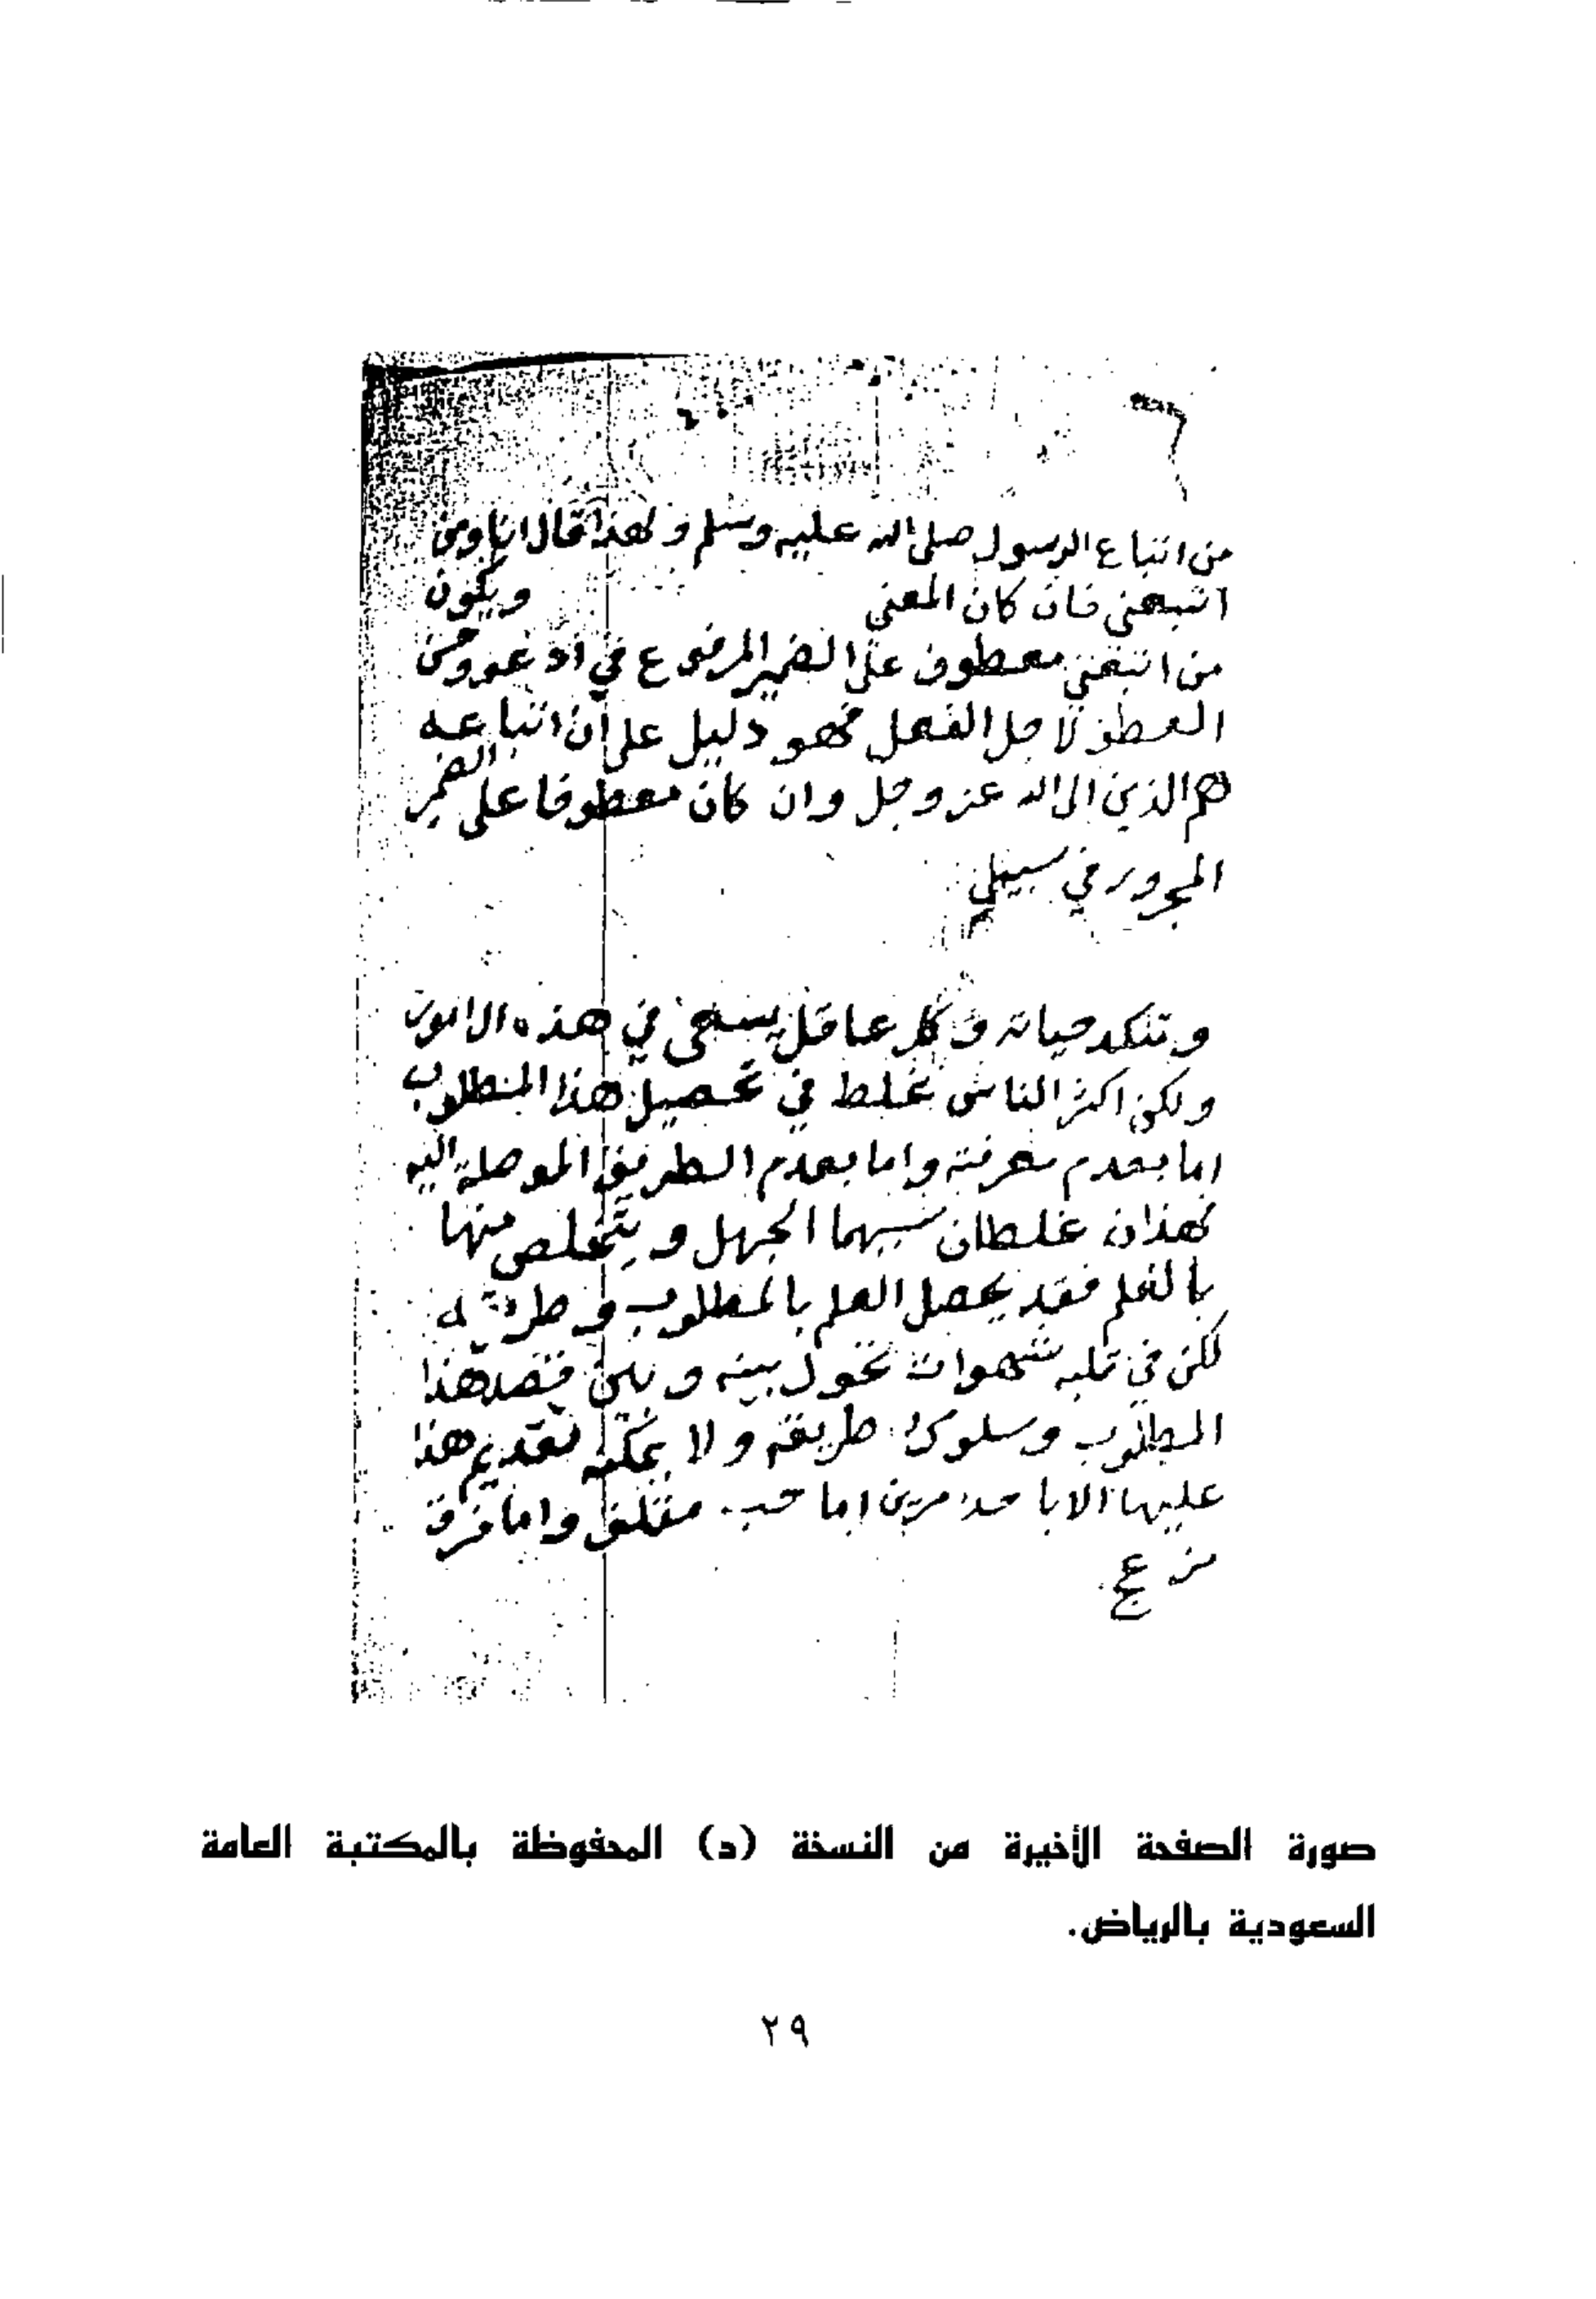 من اتباع الرسول صلى الله عليه وسلم ولهذا قال انا ومن
اتبعني فان كان المعنى ويكون
من اتبعني معطوف على الضمير المرفوع في ادعو وحسن
العطف لاجل الفصل فهو دليل على ان اتباعه
هم الذين الى الله عز وجل وان كان معطوفا على الضمير
المجرور في سبيلي
وتنكد حياته وكل عاقل يسعى في هذه الامور
ولكن اكثر الناس غلط في تحصيل هذا المطلوب
اما بعدم معرفته واما بعدم الطريق الموصلة اليه
فهذان غلطان سببهما الجهل ويتخلص منهما
بالعلم فقد يحصل العلم بالمطلوب وطريقه
لكن في قلبه شهوات تحول بينه وبين قصد هذا
المطلوب وسلوك طريقه ولا يمكنه تقديم هذا
عليها الا باحد امرين اما حب مقلق واما فرق
مزعج
صورة الصفحة الأخيرة من النسخة (د) المحفوظة بالمكتبة العامة
السعودية بالرياض.
٢٩